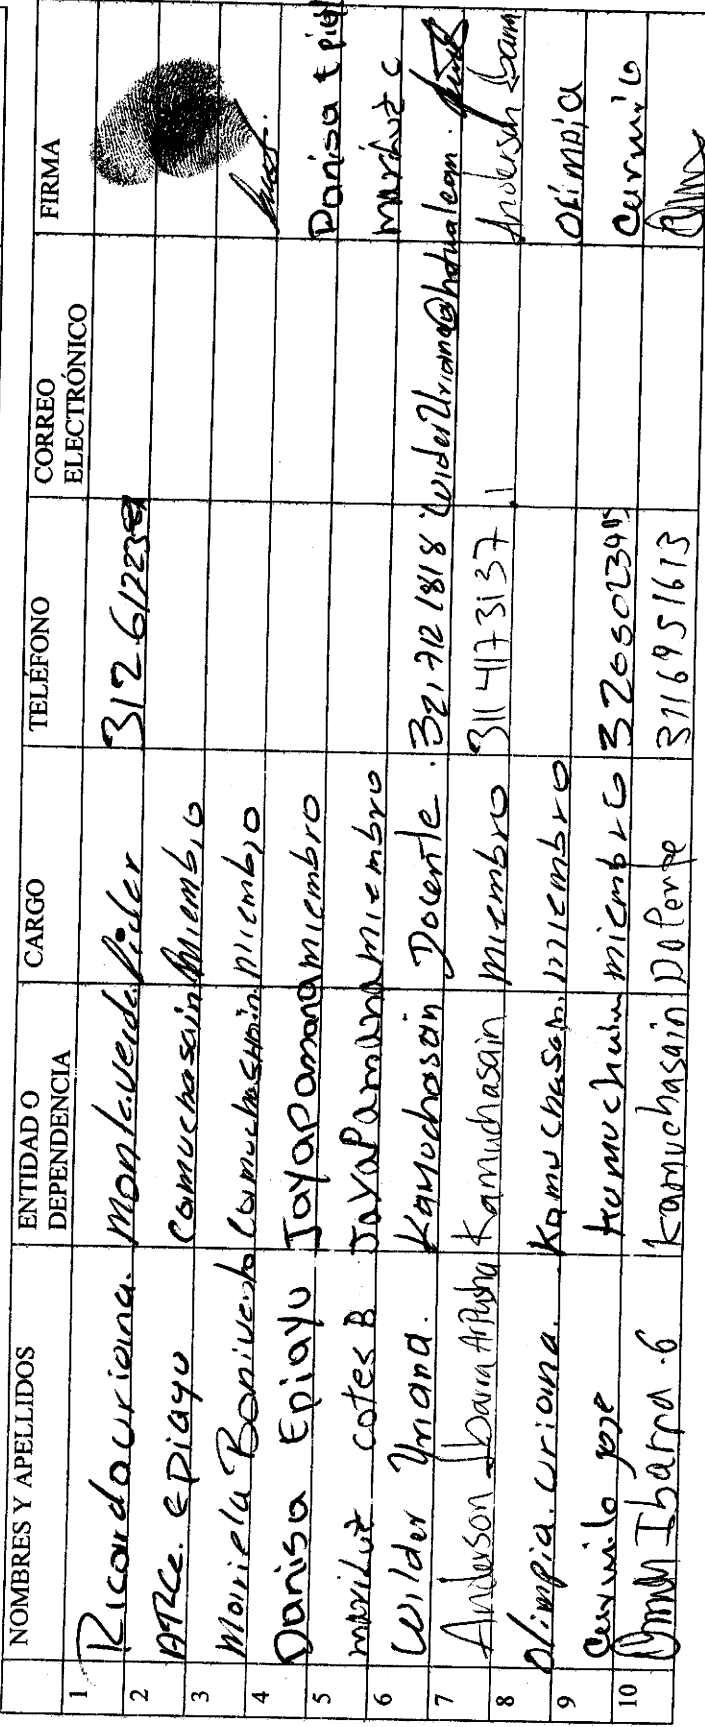 NOMBRES Y APELLIDOS ENTIDAD O DEPENDENCIA CARGO TELÉFONO CORREO ELECTRÓNICO FIRMA
1 Ricardo uriana. Monteverde. líder 312 6112238
2 ARCE. EPIAYU Camuchasain Miembro
3 Mariela Bonivento Camuchasain miembro
4 Danisa Epiayu JayaPamana miembro Danisa Epiay
5 Mariluz cotes B JayaPamana miembro Mariluz C
6 Wilder Uriana. Kamuchasain Docente. 321 712 1818
7 Anderson Ibarra Arpushana Kamuchasain miembro 311 4173137 Anderson Ibarra
8 Olimpia. uriana. Kamuchasain. miembro OLIMPIA
9 Camilo jose Kamuchain miembro Camilo
10 Ibarra .G Kamuchasain Docente 3116951613